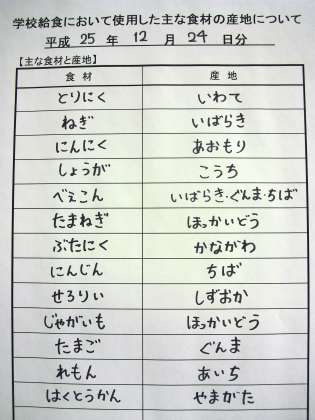 学校給食において使用した主な食材の産地について
平成 25 年 12 月 24 日分
【主な食材と産地】
食材 産地
とりにく いわて
ねぎ いばらき
にんにく あおもり
しょうが こうち
べえこん いばらき・ぐんま・ちば
たまねぎ ほっかいどう
ぶたにく かながわ
にんじん ちば
せろりい しずおか
じゃがいも ほっかいどう
たまご ぐんま
れもん あいち
はくとうかん やまがた